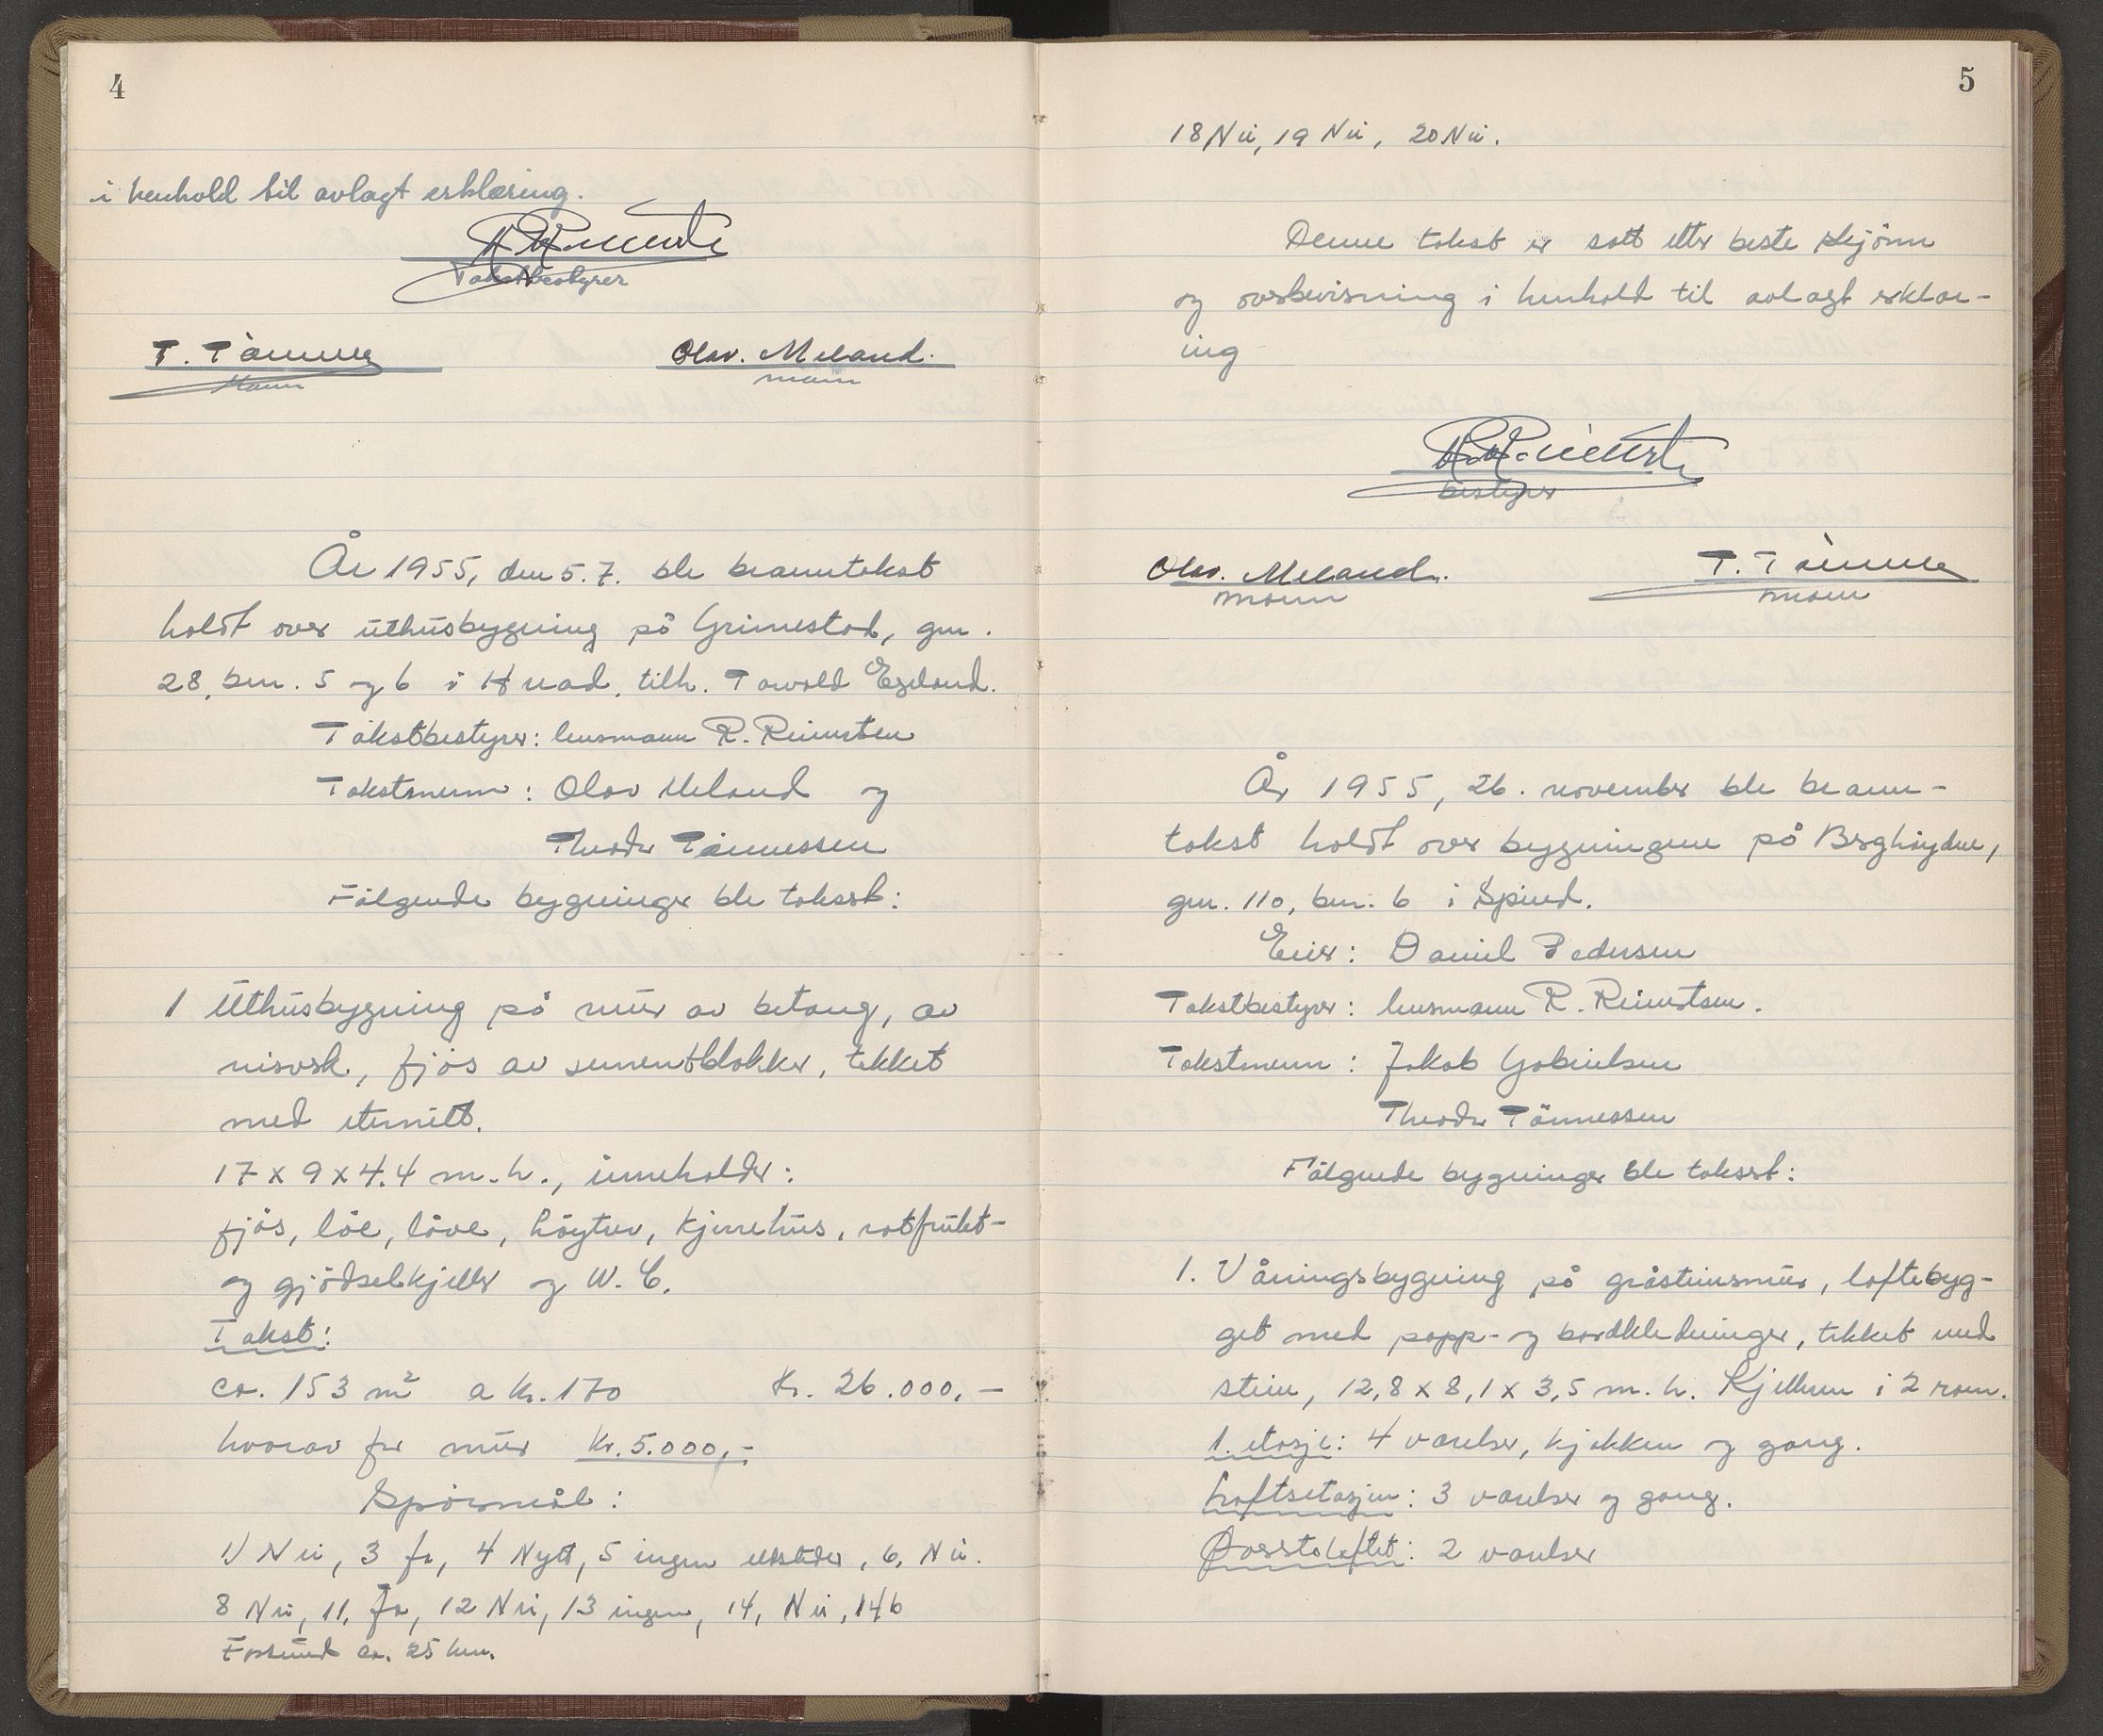 4
i henhold til avlagt erklæring.
Takstbestyrer
T. Tønnes
Olav. Meland.
mann
mann
År 1955, den 5.7. ble branntakst
holdt over uthusbygning på Grimestad, gnr.
28, bnr. 5 og 6 i Herad, tilh. Torvald Egeland.
Takstbestyrer: lensmann R. Reiersten
Takstmenn: Olav Meland og
Theodor Tönnessen
Fölgende bygninger ble taksert:
1 Uthusbygning på mur av betong, av
reisverk, fjös av sementblokker, tekket
med eternitt.
17 x 9 x 4.4 m.h., inneholder:
fjös, löe, löve, höytrev, kjerrehus, rotfrukt-
og gjödselkjeller og W.C.
Takst:
ca. 153 m² a kr. 170 Kr. 26.000,-
hvorav for mur kr. 5.000,-
Spörsmål:
1) Nei, 3 ja, 4 Nytt, 5 ingen ildsteder, 6, Nei.
8 Nei, 11, Ja, 12 Nei, 13 ingen, 14, Nei, 14b
Farsund ca. 25 km.
5
18 Nei, 19 Nei, 20 Nei.
Denne takst er satt etter beste skjönn
og overbevisning i henhold til avlagt erklær-
ing
bestyrer
Olav. Meland.
T. Tønnes
mann
mann
År 1955, 26. november ble brann-
takst holdt over bygningene på Berghöyden,
gnr. 110, bnr. 6 i Spind.
Eier: Daniel Pedersen
Takstbestyrer: lensmann R. Reiertsen.
Takstmenn: Jakob Gabrielsen
Theodor Tönnessen
Fölgende bygninger ble taksert:
1. Våningsbygning på gråsteinsmur, loftebyg-
get med papp- og bordkledninger, tekket med
stein, 12,8 x 8,1 x 3,5 m.h. Kjelleren i 2 rom.
1. etasje: 4 værelser, kjøkken og gang.
Loftsetasjen: 3 værelser og gang.
Översteloftet: 2 værelser